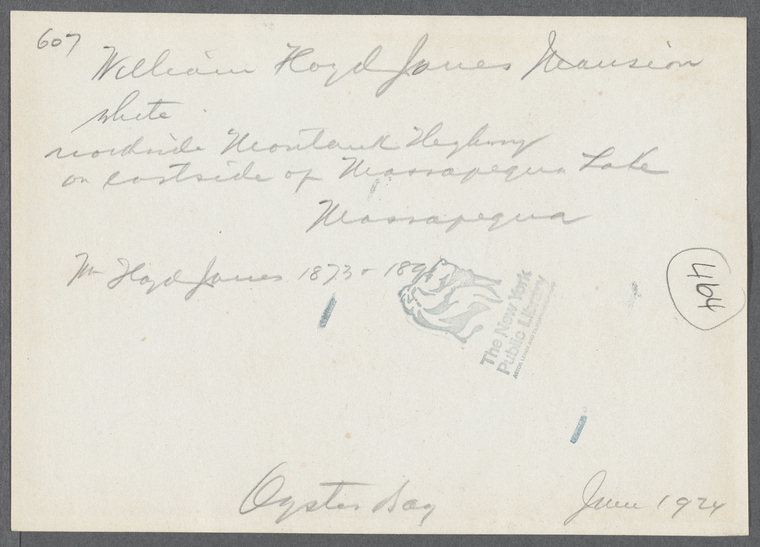 607
William Floyd Jones Mansion
white
northside Montauk Highway
on eastside of Massapequa Lake
Massapequa
Wm Floyd Jones 1873 - 1896
464
The New York
Public Library
Oyster Bay
June 1924